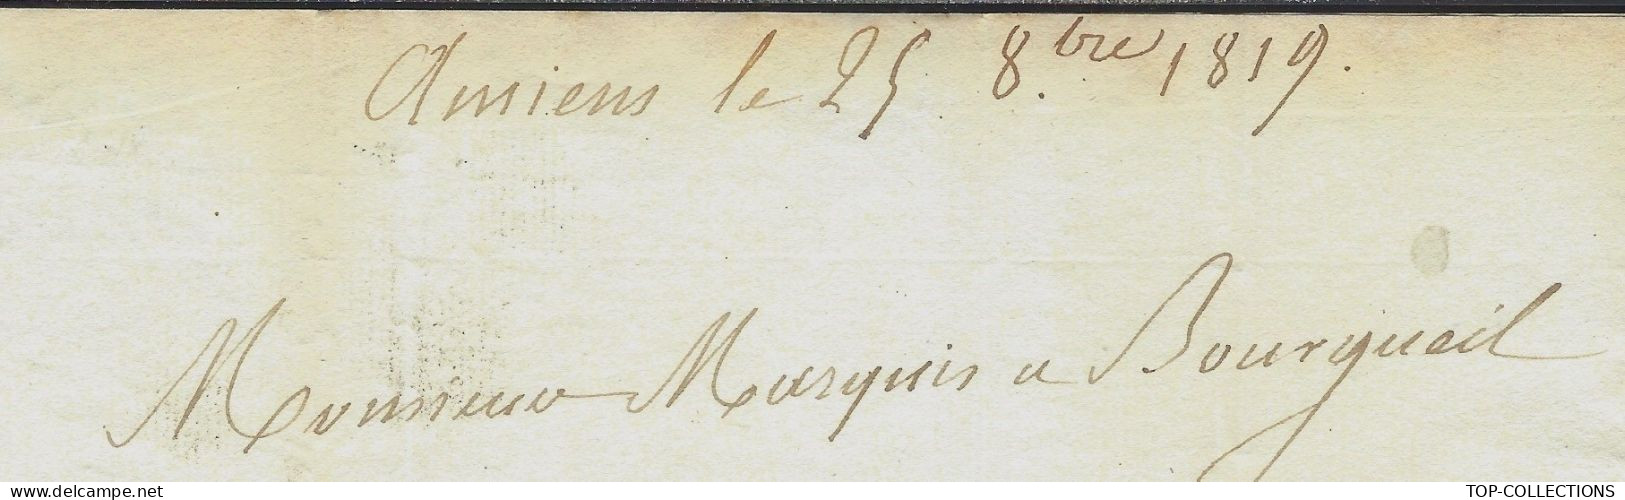 Amiens le 25 8.bre 1819.
Monsieur Marquis a Bourgueil
www.delcampe.net
TOP-COLLECTIONS